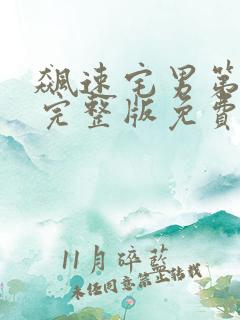 飆速宅男第
完整版免費
11月碎藍
未经同意禁止转载